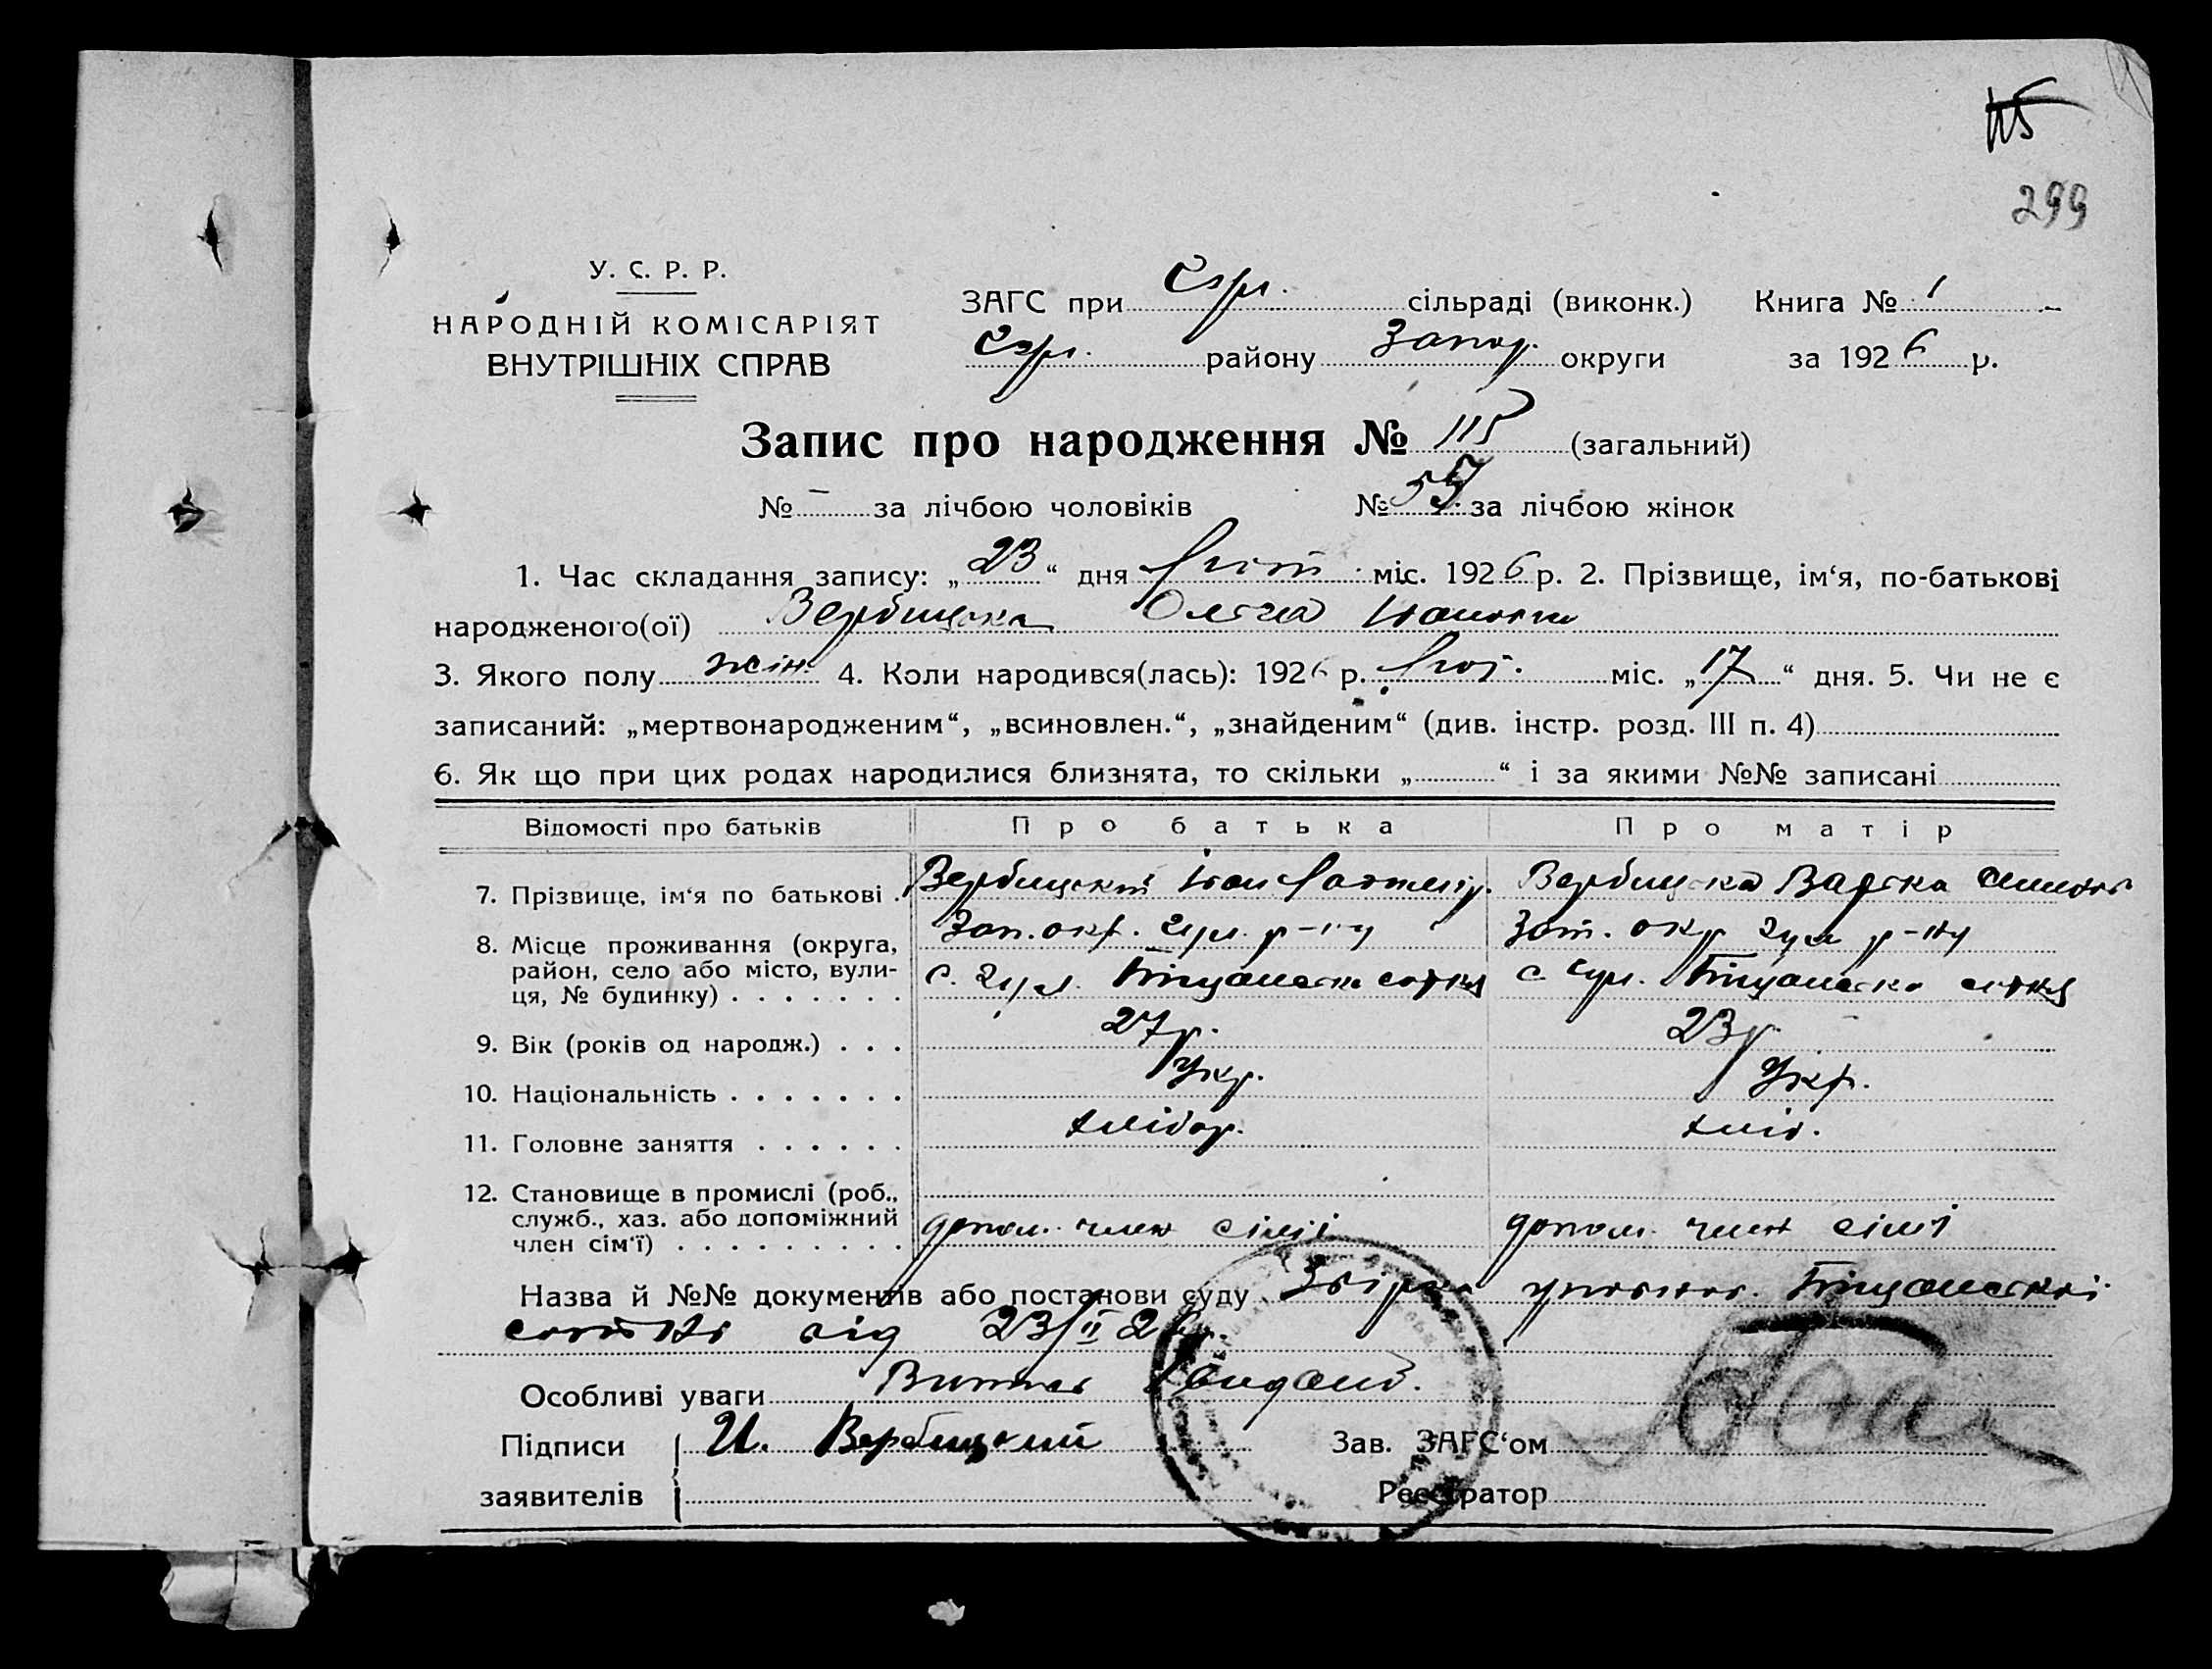 115
299
У. С. Р. Р.
НАРОДНІЙ КОМІСАРІЯТ
ВНУТРІШНІХ СПРАВ
ЗАГС при сільраді (виконк.) Книга № 1
району Запор. округи за 1926 р.
Запис про народження № 115 (загальний)
№ – за лічбою чоловіків № за лічбою жінок
1. Час складання запису: „23“ дня лют. міс. 1926 р. 2. Прізвище, ім‘я, по-батькові
народженого(ої) Вербицька Ольга Іванов
3. Якого полу жін. 4. Коли народився(лась): 1926 р. лют. міс. „17“ дня. 5. Чи не є
записаний: „мертвонародженим“, „всиновлен.“, „знайденим“ (див. інстр. розд. III п. 4)
6. Як що при цих родах народилися близнята, то скільки „ “ і за якими №№ записані
Відомості про батьків Про батька Про матір
7. Прізвище, ім‘я по батькові . Вербицький Іван Вербицька
8. Місце проживання (округа, Зап. окр. Гул. р-ну Зап. окр Гул р-ну
район, село або місто, вули- с. Гул. сотня с Гул. сотня
ця, № будинку) . . . . . . .
9. Вік (років од народж.) . . . 27 р. 23 р
10. Національність . . . . . . . Укр. Укр.
11. Головне заняття . . . . . . хлібор. хліб.
12. Становище в промислі (роб.,
служб., хаз. або допоміжний допом. член сімї допом. член сімї
член сім‘ї) . . . . . . . . .
Назва й №№ документів або постанови суду
сотні від 23/II 26 р.
Особливі уваги
Підписи И. Вербицкий Зав. ЗАГС‘ом
заявителів Реєстратор